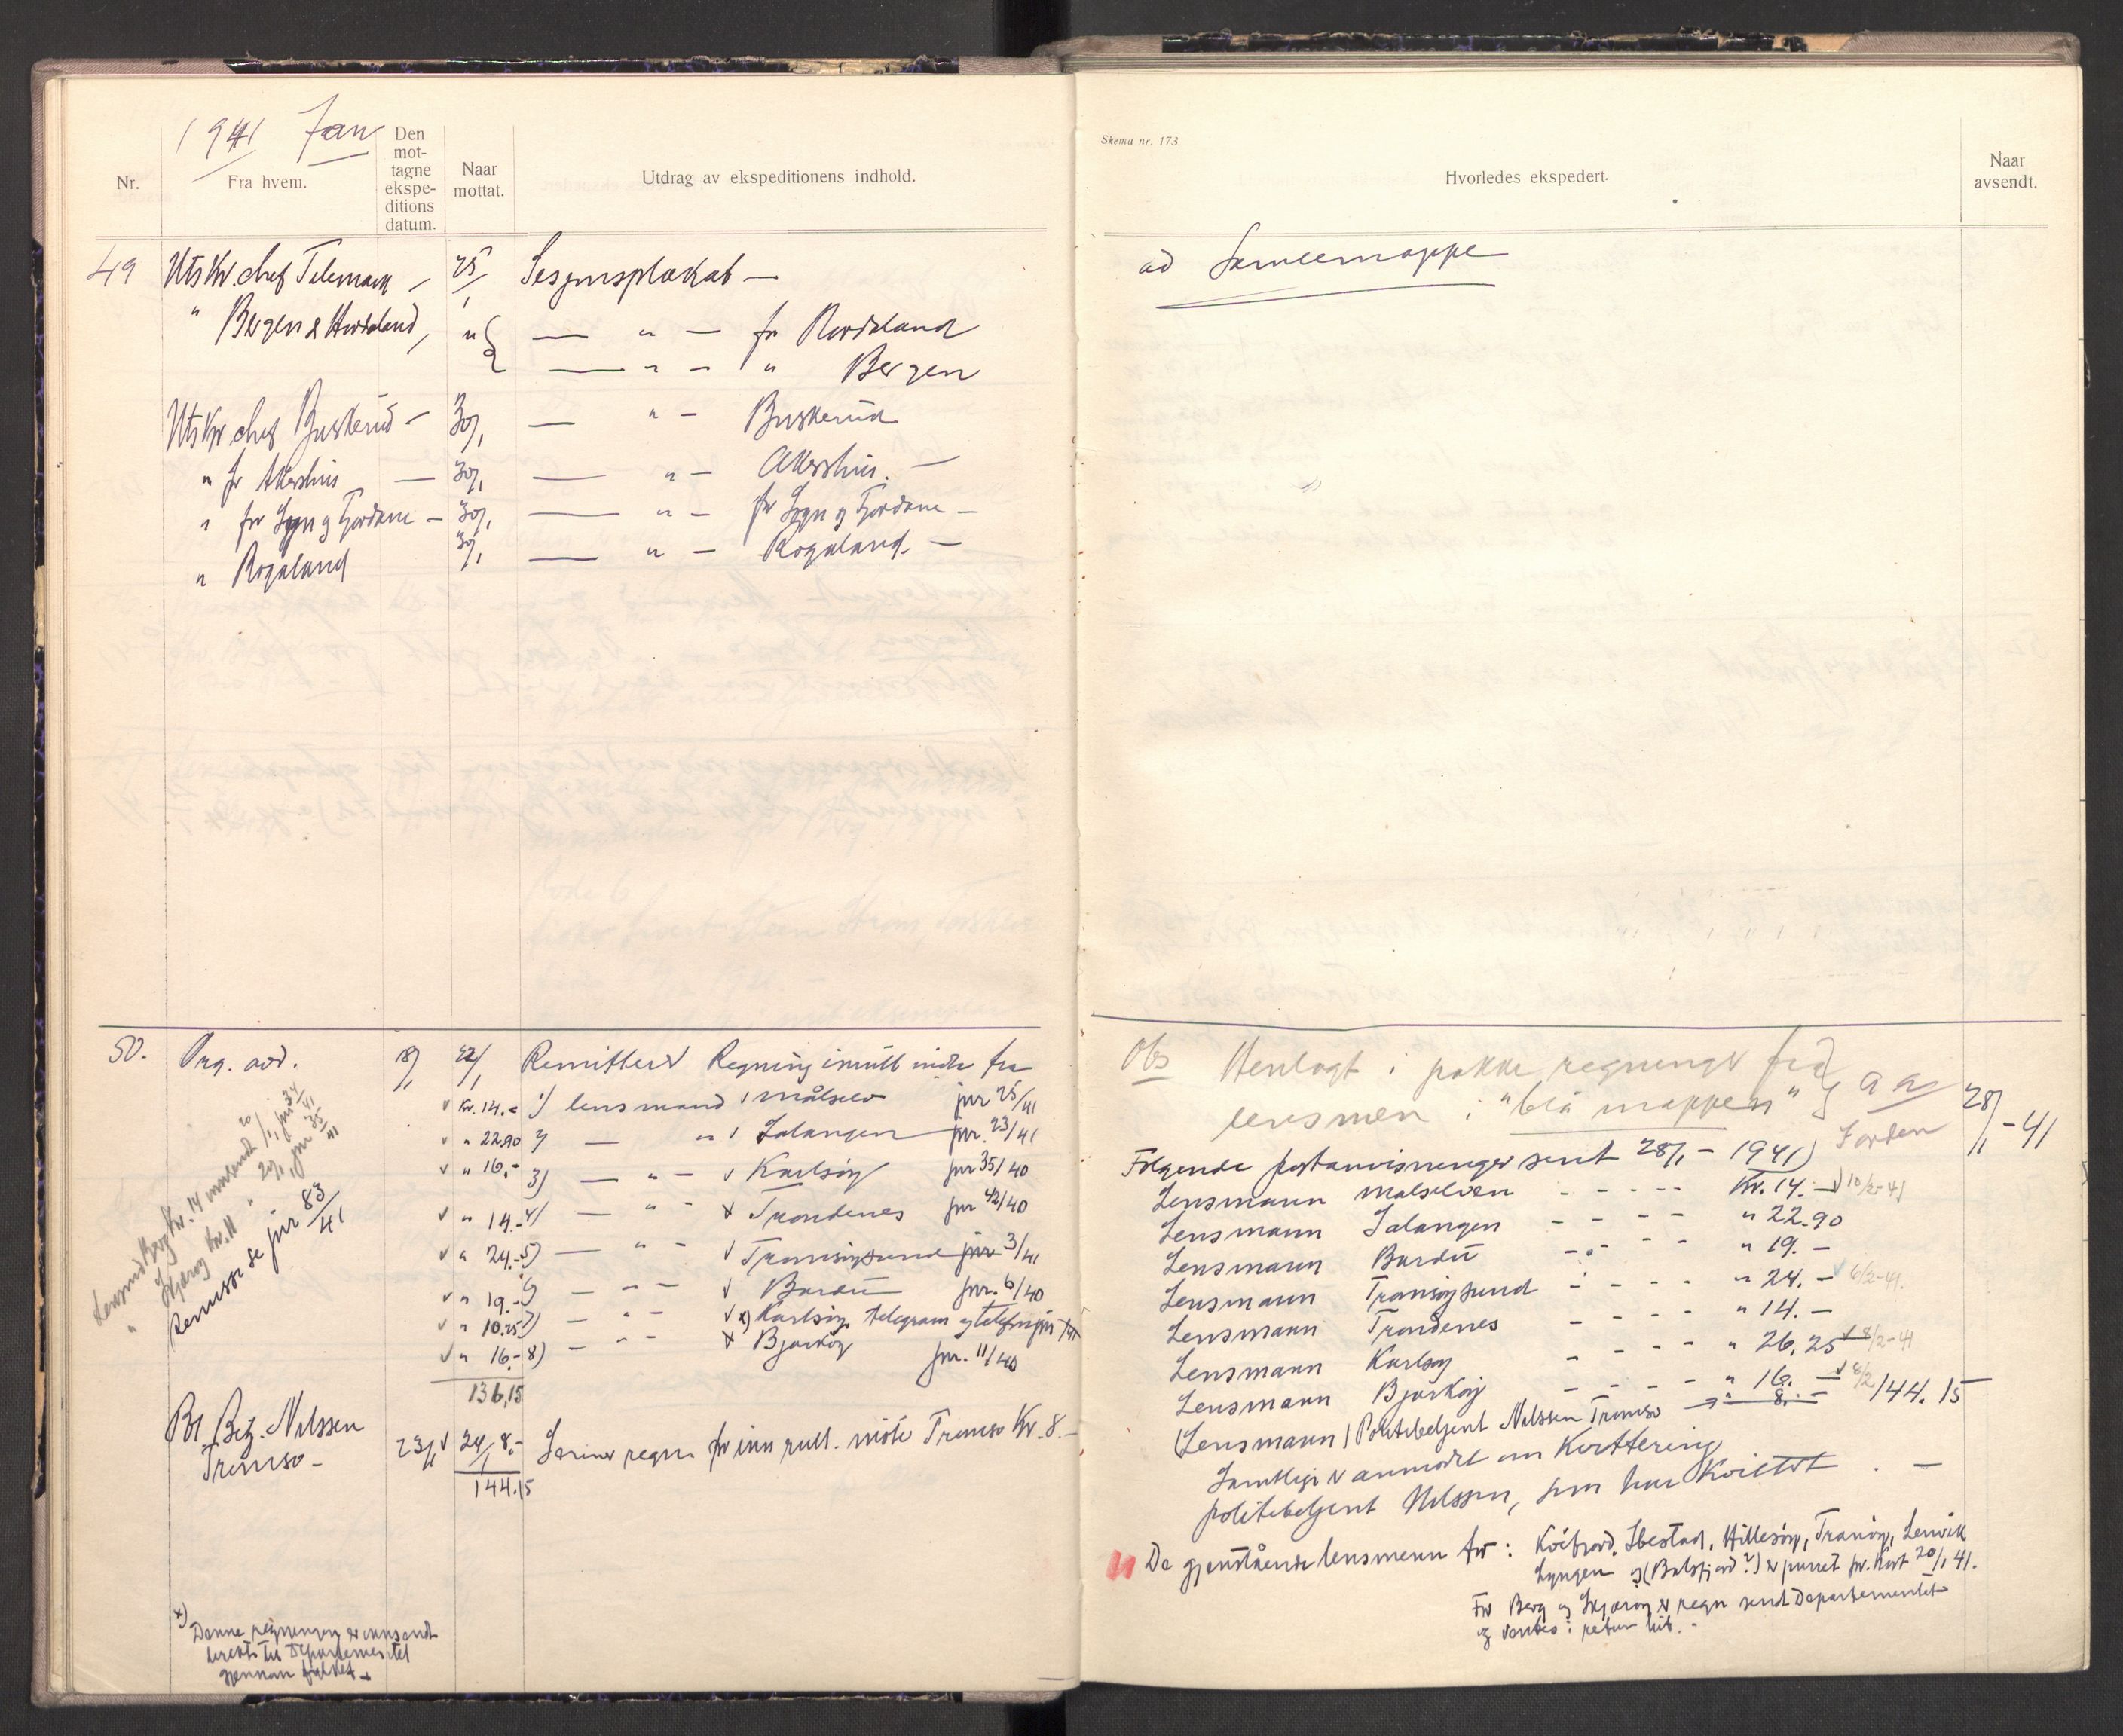 1941 Jan
Nr.
Fra hvem.
Den mot-tagne ekspe-ditions datum.
Naar mottat.
Utdrag av ekspeditionens indhold.
49 Utskr. chef Telemark — 25/1 Sesjonsplakat —
" Bergen & Hordaland, " { — " — for Hordaland
— " — " Bergen
Utskr chef Buskerud — 30/1 — " — Buskerud
" for Akershus — 30/1 — " — Akershus. —
" for Sogn og Fjordane — 30/1 — " — for Sogn og Fjordane —
" Rogaland 30/1 — " — Rogaland. —
50. Org. avd. 18/1 22/1 Remitterer Regning innrull. møter fra
Kr. 14.- 1) lensmand i Målselv jnr 25/41
" 22.90 2) — " i Salangen jnr. 23/41
" 16,- 3) — " — Karlsøy jnr 35/40
" 14.- 4) — " — Trondenes jnr 42/40
" 24.- 5) — " — Tromsøysund jnr 3/41
" 19.- 6) — " — Bardu jnr. 6/40
" 10.25 7) — " — x) Karlsøy. telegram og telefon
" 16.- 8) — " — Bjarkøy jnr. 11/40
136,15
Lensmd Berg Kr. 14 innsendt 20/1, jnr 34/41
" Skjervøy Kr. 11 " 20/1, jnr 35/41
Remisse se jnr 83/41
Pol Betj. Nilssen 23/1 24/1 8.- Sender regn. for inn rull. møte Tromsø Kr. 8.-
Tromsø -
144.15
x) Denne regningen er innsendt
direkte til Departementet
gjennom fylket -
Skema nr. 173.
Hvorledes ekspedert.
Naar avsendt.
ad Samlemappe
Obs Henlagt i pakke regninger fra
lensmen i "blå mappen" aa 28/1 - 41
Følgende postanvisninger sent 28/1 - 1941)
Lensmann Målselven - - - - Kr. 14. - 10/2-41
Lensmann Salangen - - - - " 22.90
Lensmann Bardu - - - - " 19. -
Lensmann Tromsøysund - - - - " 24. - 6/2-41.
Lensmann Trondenes - - - - " 14. -
Lensmann Karlsøy - - - - " 26,25 8/2-41
Lensmann Bjarkøy - - - - " 16. - 8/2
(Lensmann) Politibetjent Nilssen Tromsø → " 8. - 144.15
Samtlige er anmodet om kvittering
politibetjent Nilssen, som har kvittert . —
De gjenstående lensmenn for: Kvæfjord. Ibestad, Hillesøy, Tranøy, Lenvik
Lyngen og (Balsfjord?) er purret pr. Kort 20/1 41.
For Berg og Skjervøy er regn sendt Departementet
og ventes i retur hit. -